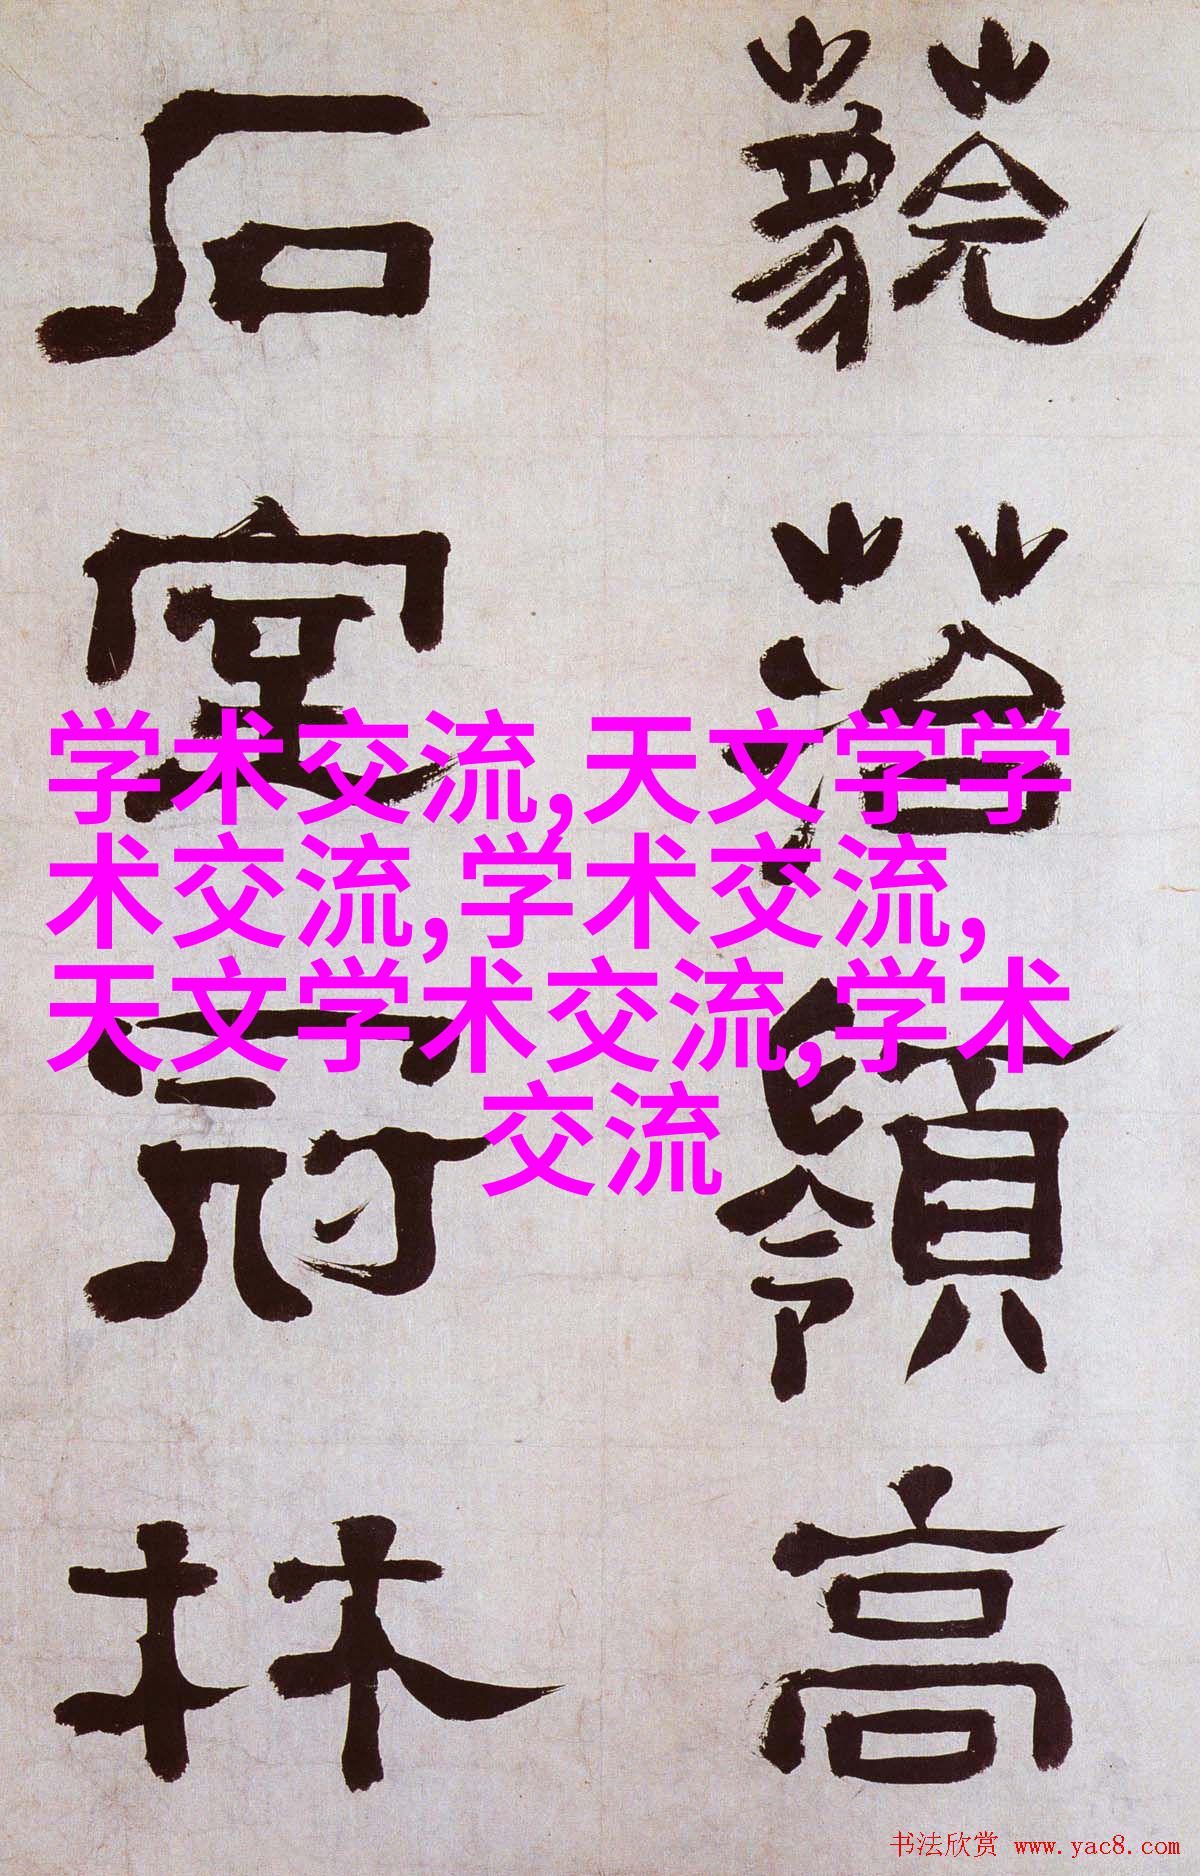 落嶺高
石室冠林
学术交流,天文学学
术交流,学术交流,
天文学术交流,学术
交流
书法欣赏 www.yac8.com